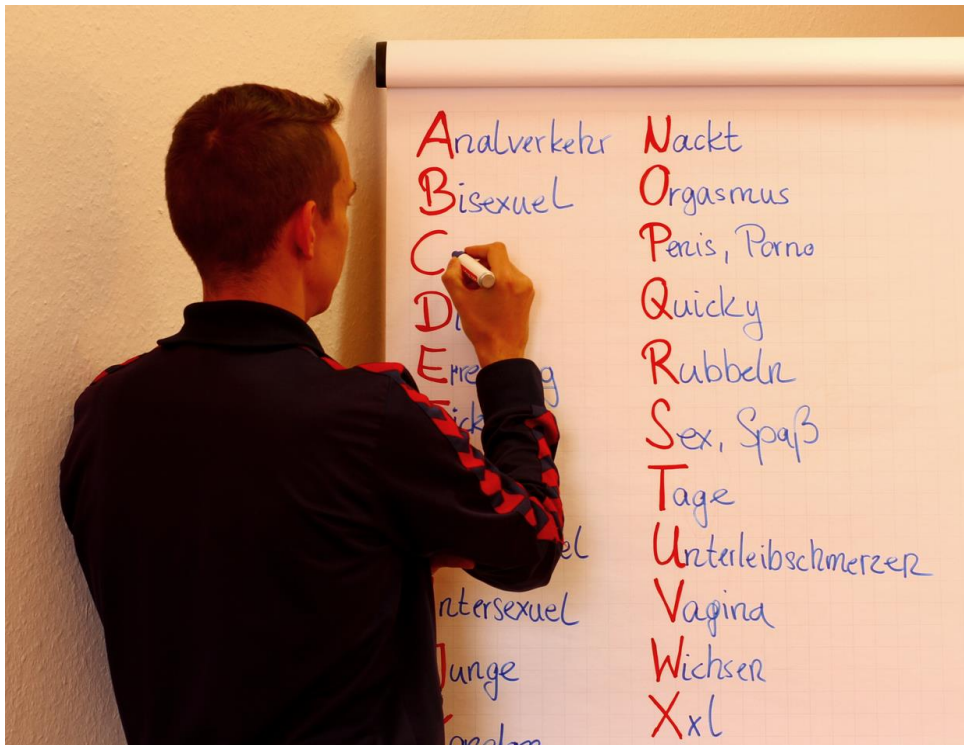 Analverkehr
Bisexuel
C
D
Erre g
ick
el
ntersexuel
Junge
Nackt
Orgasmus
Penis, Porno
Quicky
Rubbeln
Sex, Spaß
Tage
Unterleibschmerzen
Vagina
Wichsen
Xxl